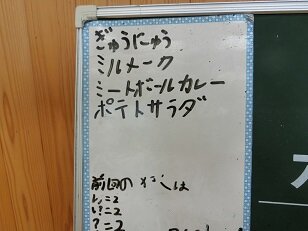 ぎゅうにゅう
ミルメーク
ミートボールカレー
ポテトサラダ
前回の は
い=2
?=2